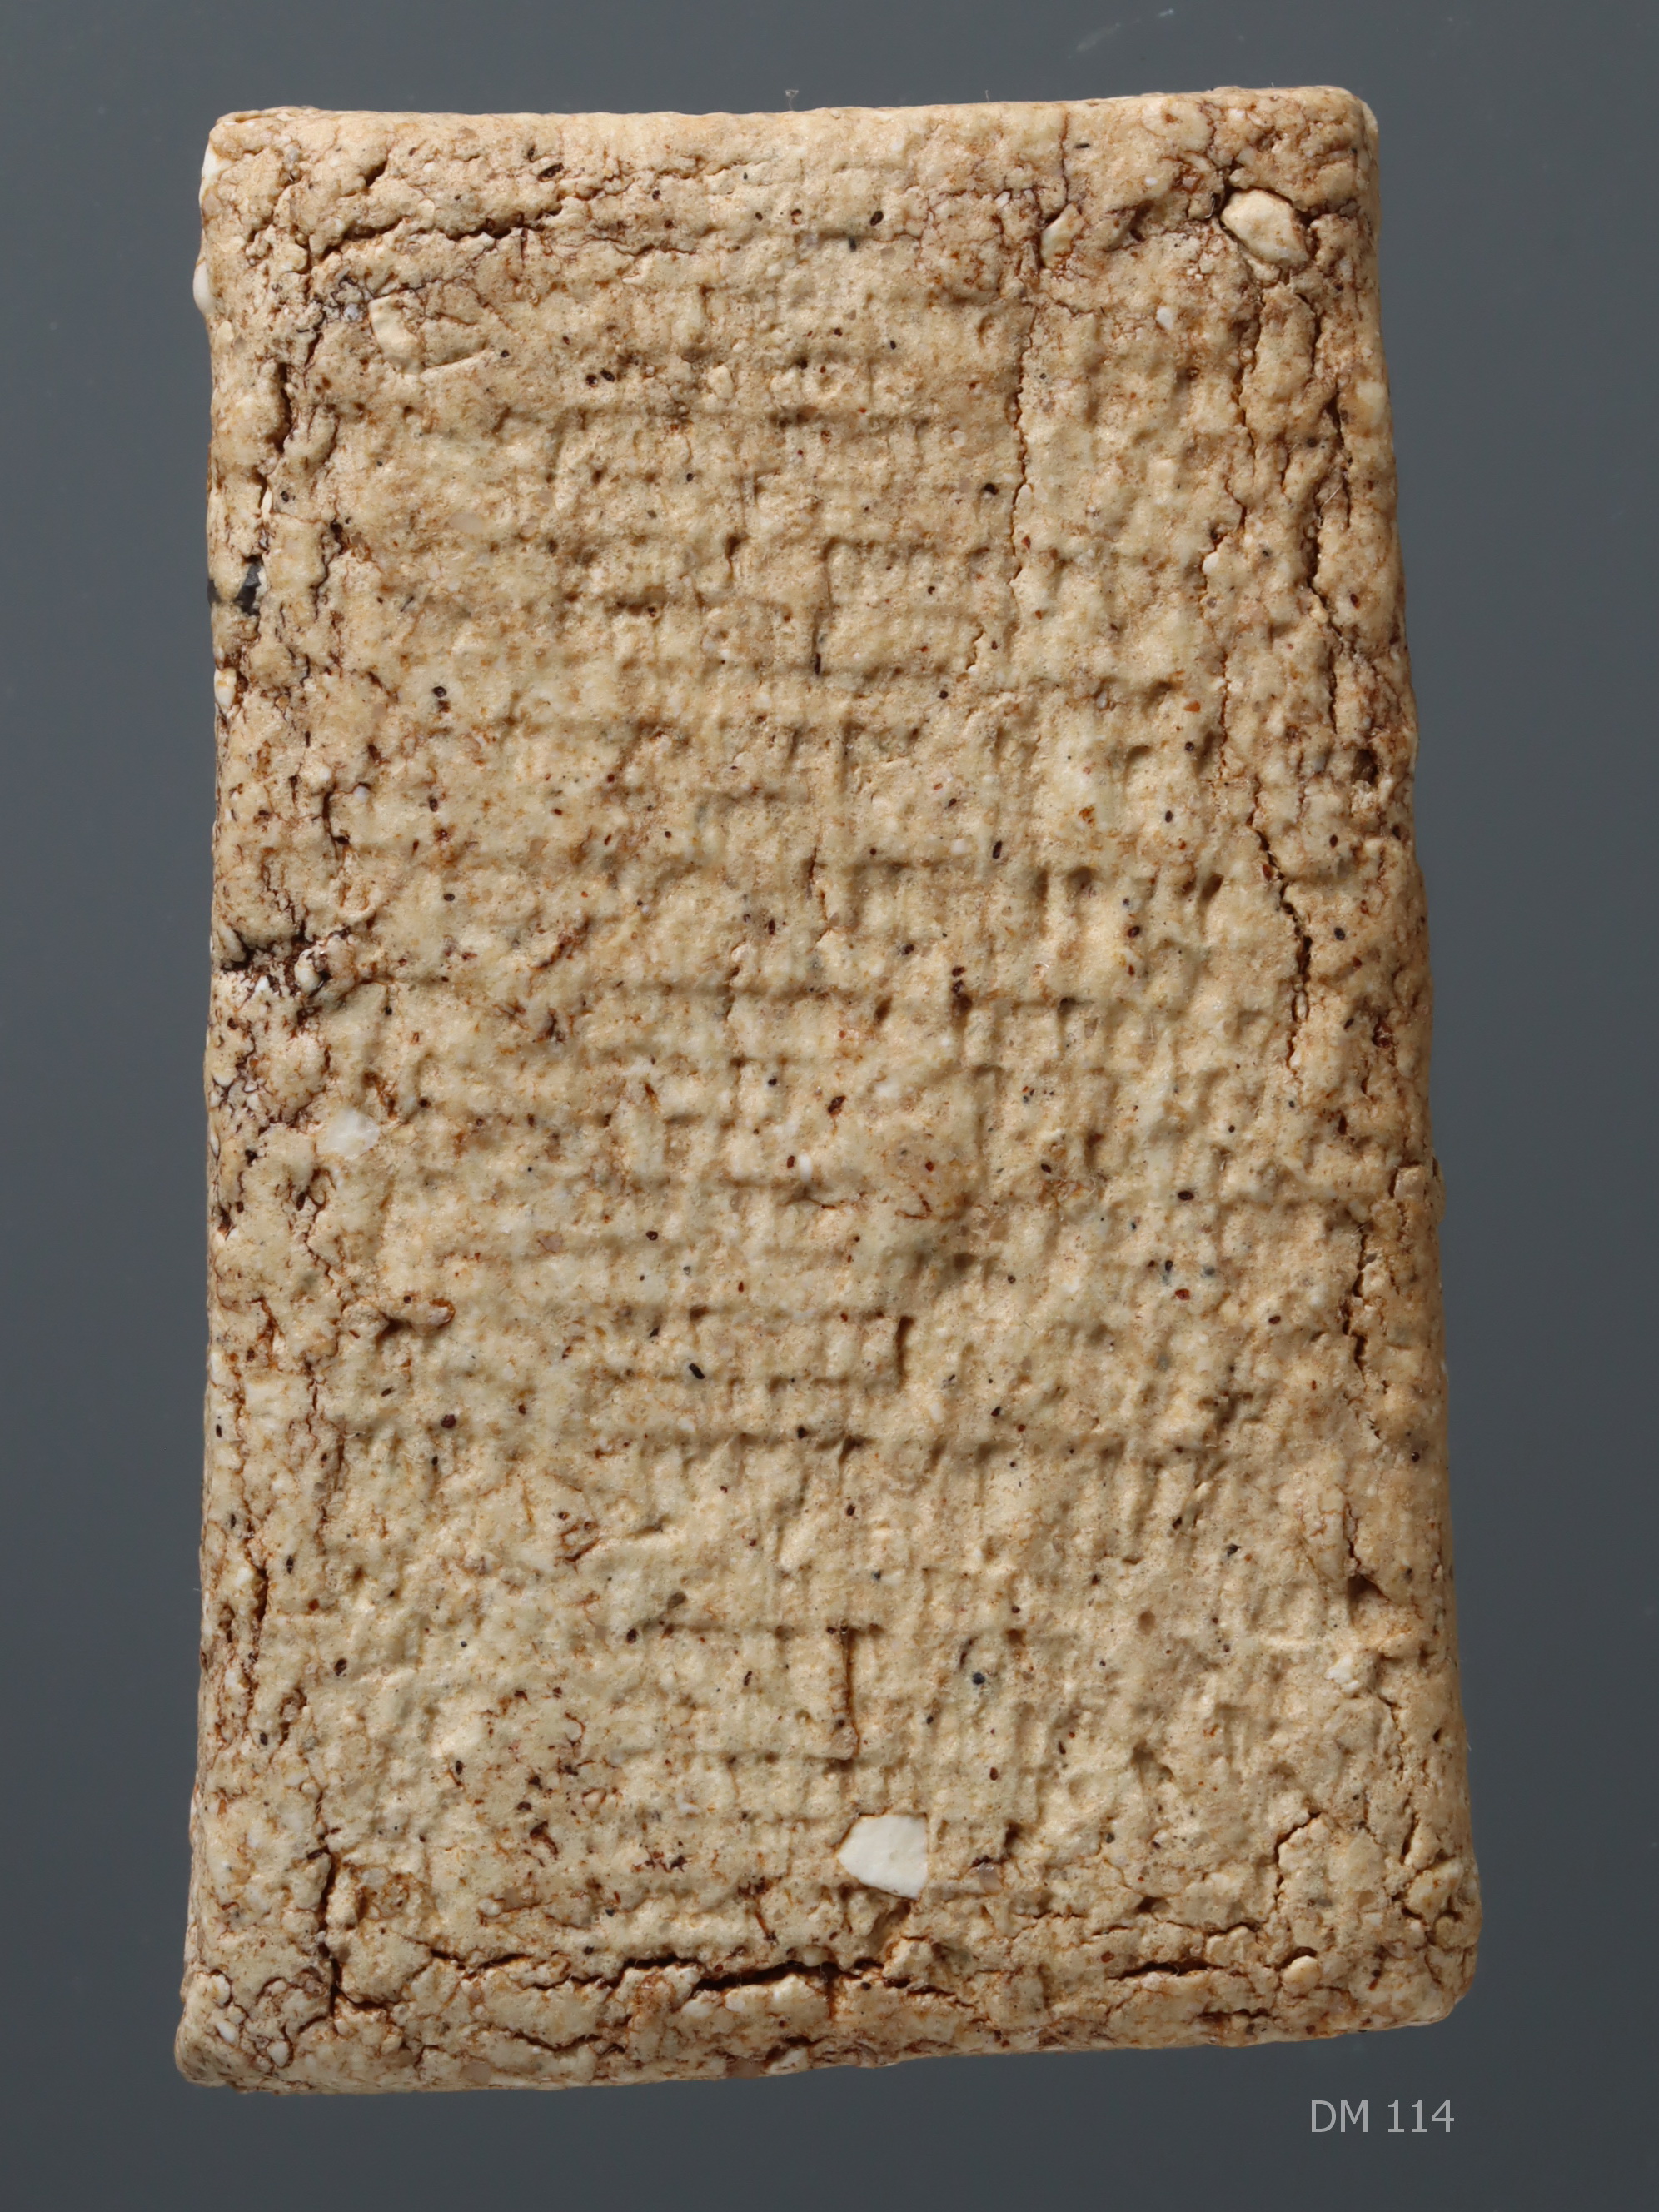 DM 114